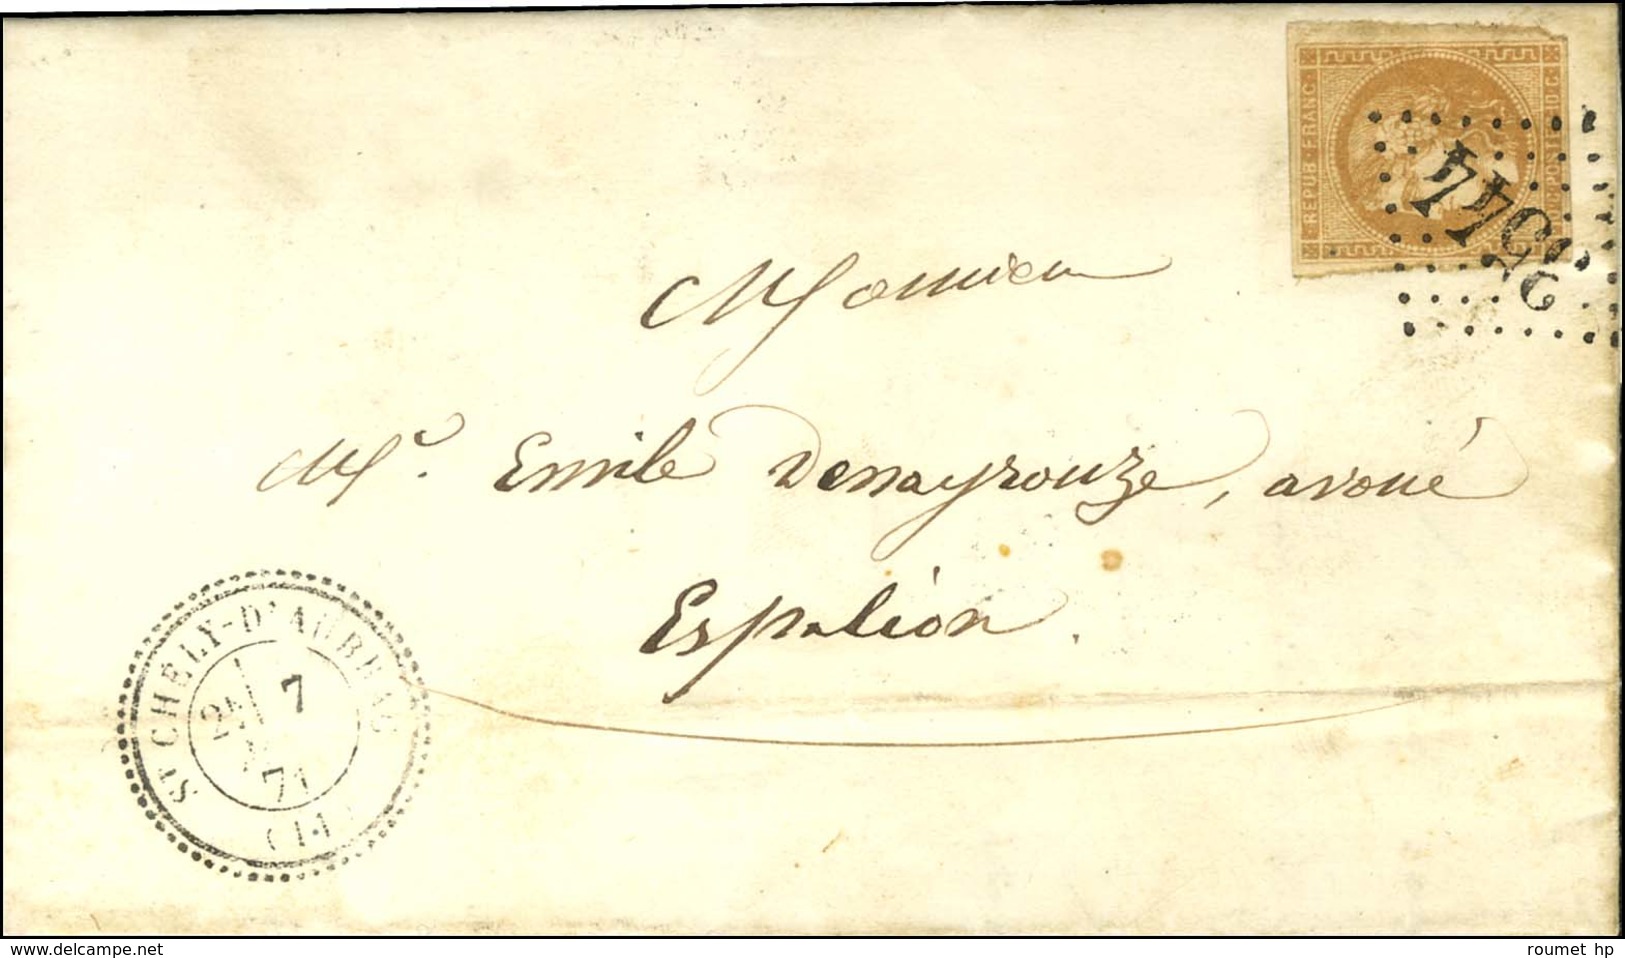 REPUB · FRANC ·
10 · C · POSTES
3544
Monsieur
Mr. Emile Denayrouze, avoué
Espalion.
ST CHELY-D'AUBRAC
2E 7
71
www.delcampe.net
roumet hp